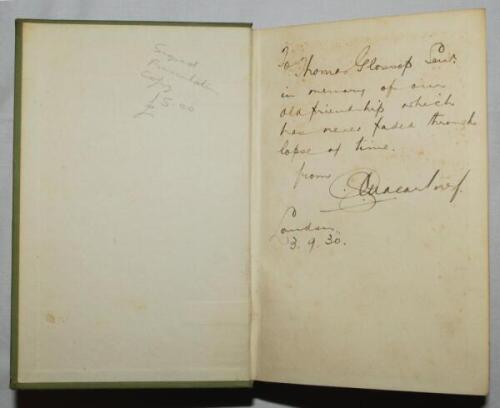 Signed
Presentation
Copy
£5.00
To Thomas Glossop Senr.
in memory of our
old friendship which
has never faded through
lapse of time.
from
C. Macartney.
London.
3.9.30.